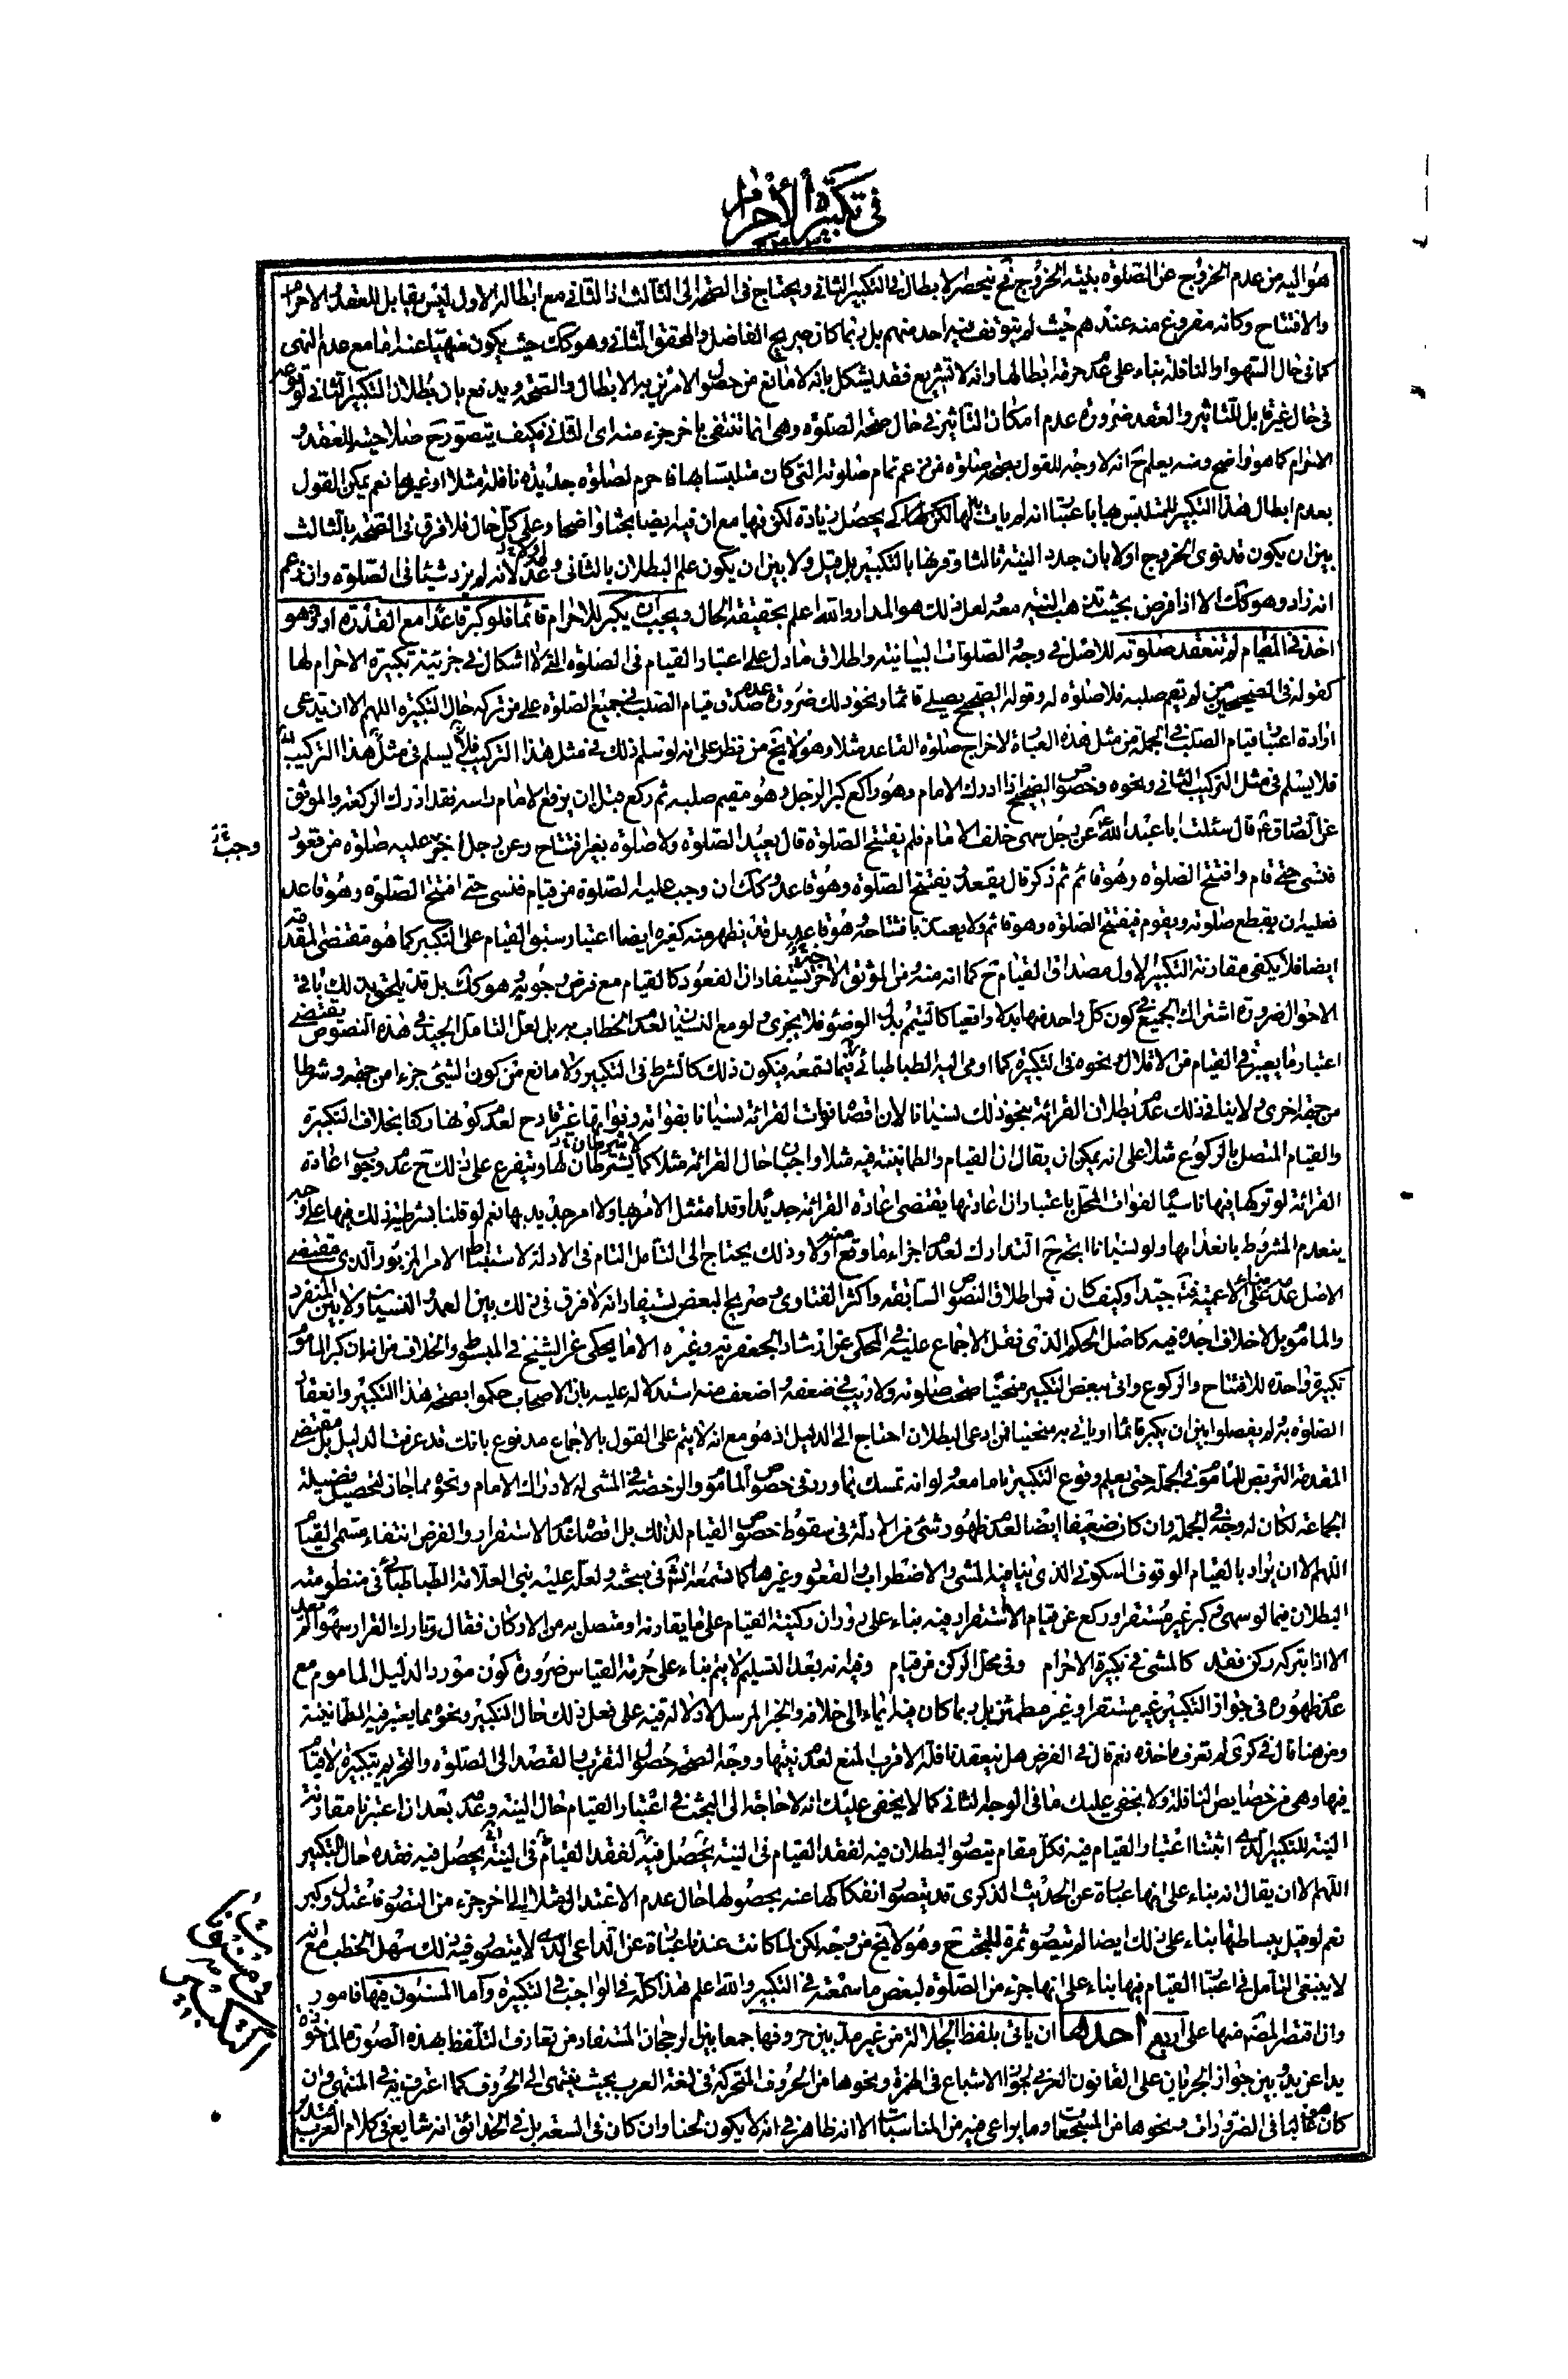 في تكبيرة الاحرام
هو اليه من عدم الخروج عن الصلوة بنية الخروج فح ينحصر الابطال في التكبير الثاني ويحتاج في الصحة الى الثالث اذ الثاني مع ابطاله الاول ليس بقابل للعقد والاحرام
والافتتاح وكانه مفروغ منه عندهم حيث لم يتوقف فيه احد منهم بل ربما كان صريح الفاضل والمحقق الثاني وهو كك حيث يكون منهيا عنه اما مع عدم النهي
كما في حال السهو او النافلة بناء على عدم حرمة ابطالها وانه لا تشريع فقد يشكل بانه لا مانع من حصول الامرين به الابطال والصحة ويدفع بان بطلان التكبير الثاني لوقوعه
في حال غير قابل للتاثير والعقد ضرورة عدم امكان التاثير في حال صحة الصلوة وهي انما تنتفي باخر جزء منه اي الثاني فكيف يتصور ح صلاحيته للعقد و
الاحرام كما هو واضح ومنه يعلم ح انه لا وجه للقول بصحة صلوة من زعم تمام صلوته التي كان متلبسا بها فاحرم لصلوة جديدة نافلة مثلا او غيرها نعم يمكن القول
بعدم ابطال هذا التكبير للمتلبس بها باعتبار انه لم يات به لها لكن كي يحصل زيادة لكن فيها مع ان فيه ايضا بحثا واضحا وعلى كل حال فلا فرق في الصحة بالثالث
بين ان يكون قد نوى الخروج اولا بان جدد النية ثالثا وقرنها بالتكبير بل قيل ولا بين ان يكون علم البطلان بالثاني وعدمه لانه لم يزد شيئا في الصلوة وان زعم
انه زاد وهو كك الا اذا فرض بحيث تذهب النية معه لعل ذلك هو المدار والله اعلم بحقيقة الحال ويجب ان يكبر للاحرام قائما فلو كبر قاعدا مع القدرة او وهو
اخذ في القيام لم تنعقد صلوته للاصل في وجه الصلوات البيانية واطلاق ما دل على اعتبار القيام في الصلوة التي لا اشكال في جزئية تكبيرة الاحرام لها
كقوله في الصحيحين من لم يقم صلبه فلا صلوة له وقوله الصحيح يصلي قائما ونحو ذلك ضرورة عدم صدق قيام الصلب في جميع الصلوة على من تركه حال التكبيرة اللهم الا ان يدعى
ارادة اعتبار قيام الصلب في الجملة من مثل هذه العبارة لاخراج صلوة القاعد مثلا وهو لا يخ من نظر على انه لو سلم ذلك في مثل هذا التركيب فلا يسلم في مثل هذا التركيب
فلا يسلم في مثل التركيب الثاني ونحوه وخصوص الصحيح اذا ادرك الامام وهو راكع كبر الرجل وهو مقيم صلبه ثم ركع قبل ان يرفع الامام راسه فقد ادرك الركعة والموثق
عن الصادق ع قال سئلت ابا عبد الله ع عن رجل سهى خلف الامام فلم يفتتح الصلوة قال يعيد الصلوة ولا صلوة بغير افتتاح وعن رجل اخر عليه صلوة من قعود
وجبت
فنسى حتى قام وافتتح الصلوة وهو قائم ثم ذكر قال يقعد ويفتتح الصلوة وهو قاعد وكك ان وجب عليه الصلوة من قيام فنسى حتى افتتح الصلوة وهو قاعد
فعليه ان يقطع صلوته ويقوم فيفتتح الصلوة وهو قائم ولا يعتد بافتتاحه وهو قاعد بل قد يظهر منه كغيره ايضا اعتبار سبق القيام على التكبير كما هو مقتضى المقدمة
ايضا فلا يكفي مقارنة التكبير لاول مصداق القيام ح كما انه منه ومن الموثق الاخر يستفاد ان القعود كالقيام مع فرض وجوبه وهو كك بل قد يلحق بذلك باقي
الاحوال ضرورة اشتراك الجميع في كون كل واحد منها بدلا واقعيا كالتيمم بدل الوضوء فلا يجزى ولو مع النسيان لعدم الخطاب به بل لعل التامل الجيد في هذه النصوص يقتضي
اعتبار ما يعتبر في القيام من الاقلال ونحوه في التكبيرة كما اومى اليه الطباطبائي فيما تسمعه فيكون ذلك كالشرط في التكبير ولا مانع من كون الشئ جزءا من جهة وشرطا
من جهة اخرى ولا ينافي ذلك عدم بطلان القرائة بنحو ذلك نسيانا لان اقصاه فوات القرائة نسيانا بفواته وفواتها غير قادح لعدم كونها ركنا بخلاف التكبيرة
والقيام المتصل بالركوع مثلا على انه يمكن ان يقال ان القيام والطمانينة فيه مثلا واجبان حال القرائة مثلا لا شرطان لها ويتفرع على ذلك ح عدم وجوب اعادة
القرائة لو تركها فيها ناسيا لفوات المحل باعتبار ان اعادتها يقتضى اعادة القرائة جديدا وقد امتثل الامر بها ولا امر جديد بها نعم لو قلنا بشرطية ذلك فيها على وجه
ينعدم المشروط بانعدامها ولو نسيانا اتجه ح التدارك لعدم اجزاء ما وقع منه اولا وذلك يحتاج الى التامل التام في الادلة لاستنباط الامر المزبور الذي مقتضى
الاصل عدمه بناء على الاعمية فت جيدا وكيف كان فمن اطلاق النصوص السابقة واكثر الفتاوى وصريح البعض يستفاد انه لا فرق في ذلك بين العمد والنسيان ولا بين المنفرد
والماموم بل لا خلاف اجده فيه كاصل الحكم الذي نقل الاجماع عليه في المحكي عن ارشاد الجعفرية وغيره الا ما يحكى عن الشيخ في المبسوط والخلاف من انه ان كبر الماموم
تكبيرة واحدة للافتتاح والركوع واتى ببعض التكبير منحنيا صحت صلوته ولا ريب في ضعفه واضعف منه استدلاله عليه بان الاصحاب حكموا بصحة هذا التكبير وانعقاد
الصلوة به ولم يفصلوا بين ان يكبر قائما او ياتي به منحنيا فمن ادعى البطلان احتاج الى الدليل اذ هو مع انه لا يتم على القول بالاجماع مدفوع بانك قد عرفت الدليل بل مقتضى
المقدمة التربص للماموم في الجملة حتى يعلم وقوع التكبير تاما معه ولو انه تمسك بما ورد في خصوص الماموم والرخصة في المشي له لادراك الامام ونحوه مما جاز لتحصيل فضيلة
الجماعة لكان له وجه في الجملة وان كان ضعيفا ايضا لعدم ظهور شئ من الادلة في سقوط خصوص القيام لذلك بل اقصاه عدم الاستقرار والفرض انتفاء مسمى القيام
اللهم الا ان يراد بالقيام الوقوف السكوني الذي ينافيه المشي والاضطراب والقعود وغيرها كما تسمعه انش في مبحثه ولعله عليه بنى العلامة الطباطبائي في منظومته
البطلان فيما لو سهى فكبر غير مستقر او ركع عن قيام لا استقرار فيه بناء على دوران ركنية القيام على ما يقارنه او متصل به من الاركان فقال وتارك القرار سهوا لم يعد
الا اذا بتركه ركن فقد كالمشي في تكبيرة الاحرام وفي محل الركن من قيام وفيه انه بعد التسليم لا يتم بناء على حرمة القياس ضرورة كون مورد الدليل الماموم مع
عدم ظهوره في جواز التكبير غير مستقر او غير مطمئن بل ربما كان فيه ايماء الى خلافه والخبر المرسل لا دلالة فيه على فعل ذلك حال التكبير ونحوه مما يعتبر فيه الطمانينة
ومن هنا قال في كرى لم نعرف ماخذه نعم قال في الفرض هل تنعقد نافلة الاقرب المنع لعدم نيتها ووجه الصحة حصول التقرب والقصد الى الصلوة والتحريم بتكبيرة لا قيام
فيها وهي من خصايص النافلة ولا يخفى عليك ما في الوجه الثاني كما لا يخفى عليك انه لا حاجة الى البحث في اعتبار القيام حال النية وعدمه بعد ان اعتبرنا مقارنة
النية للتكبير الذي اثبتنا اعتبار القيام فيه فكل مقام يتصور البطلان فيه لفقد القيام في النية يحصل فيه لفقد القيام في النية يحصل فيه فقده حال التكبير
اللهم الا ان يقال انه بناء على انها عبارة عن الحديث الذكرى قد يتصور انفكاكها عنه بحصولها حال عدم الاعتدال مثلا الى اخر جزء من التصور فاعتدل وكبر
نعم لو قيل ببساطتها بناء على ذلك ايضا لم يتصور ثمرة للبحث ح وهو لا يخ من وجه لكن لما كانت عندنا عبارة عن الداعي الذي لا يتصور فيه ذلك سهل الخطب مع انه
لا ينبغي التامل في اعتبار القيام فيها بناء على انها جزء من الصلوة لبعض ما سمعته في التكبير والله اعلم هذا كله في الواجب في التكبيرة واما المسنون فيها فامور
وان اقتصر المصنف منها على اربع احدها ان ياتى بلفظ الجلالة من غير مد بين حروفها جمعا بين الرجحان المستفاد من تعارف التلفظ بهذه الصورة الماخوذة
يدا عن يد وبين جواز الجريان على القانون العربي لجواز الاشباع في الهمزة ونحوها من الحروف المتحركة في لغة العرب بحيث ينتهى الى الحروف كما اعترف به في المنتهى وان
كان هو غالبا في الضرورات ونحوها من المسجعات وما يراعى فيه من المناسبات الا انه ظاهر في انه لا يكون لحنا وان كان في السعة بل في الحدائق انه شايع في كلام العرب